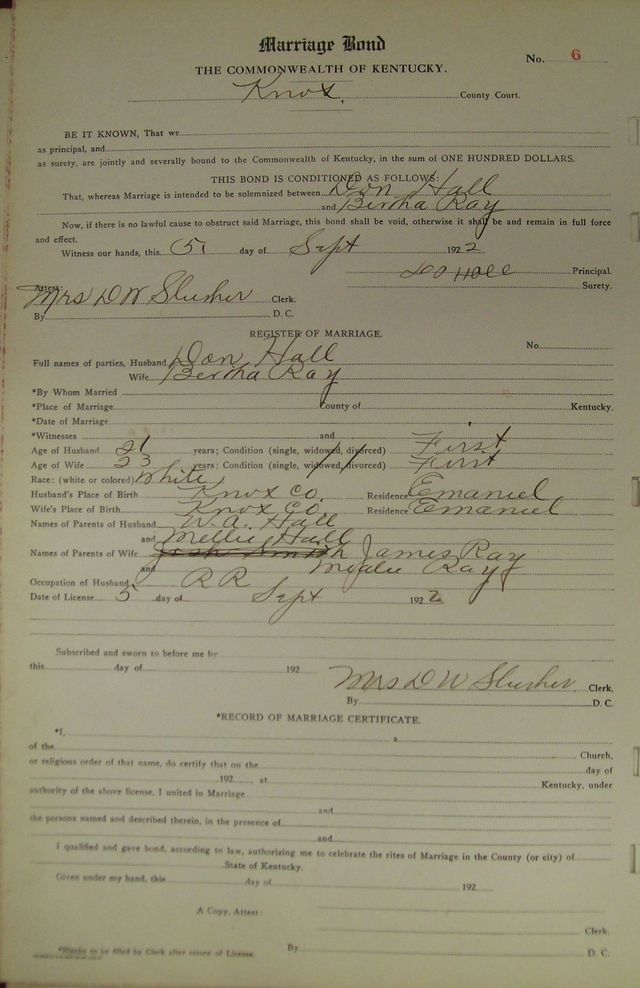 Marriage Bond
No. 6
THE COMMONWEALTH OF KENTUCKY.
Knox. County Court.
BE IT KNOWN, That we
as principal, and
as surety, are jointly and severally bound to the Commonwealth of Kentucky, in the sum of ONE HUNDRED DOLLARS.
THIS BOND IS CONDITIONED AS FOLLOWS:
That, whereas Marriage is intended to be solemnized between Don Hall
and Bertha Ray
Now, if there is no lawful cause to obstruct said Marriage, this bond shall be void, otherwise it shall be and remain in full force
and effect.
Witness our hands, this 5 day of Sept 1922
Hall Principal.
Surety.
Attest:
Mrs D W Slusher Clerk.
By D. C.
REGISTER OF MARRIAGE.
No.
Full names of parties, Husband Don Hall
Wife Bertha Ray
*By Whom Married
*Place of Marriage County of Kentucky.
*Date of Marriage
*Witnesses and
Age of Husband 21 years; Condition (single, widowed, divorced) First
Age of Wife 23 years; Condition (single, widowed, divorced) First
Race: (white or colored) White
Husband's Place of Birth Knox Co. Residence Emanuel
Wife's Place of Birth Knox Co. Residence Emanuel
Names of Parents of Husband W. A. Hall
and Mellie Hall
Names of Parents of Wife James Ray
and Ray
Occupation of Husband R R
Date of License 5 day of Sept 1922
Subscribed and sworn to before me by
this day of 192
Mrs D W Slusher Clerk.
By D. C.
*RECORD OF MARRIAGE CERTIFICATE.
*I, a
of the Church,
or religious order of that name, do certify that on the day of
192 , at Kentucky, under
authority of the above license, I united in Marriage
and
the persons named and described therein, in the presence of
and
I qualified and gave bond, according to law, authorizing me to celebrate the rites of Marriage in the County (or city) of
State of Kentucky.
Given under my hand, this day of 192
A Copy. Attest:
Clerk.
*Blanks to be filled by Clerk after return of License
By D. C.